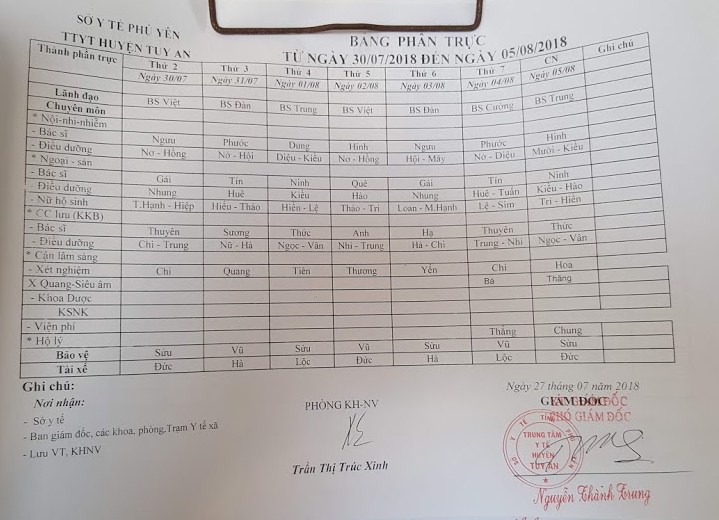 SỞ Y TẾ PHÚ YÊN
TTYT HUYỆN TUY AN
BẢNG PHÂN TRỰC
TỪ NGÀY 30/07/2018 ĐẾN NGÀY 05/08/2018
Thành phần trực Thứ 2 Thứ 3 Thứ 4 Thứ 5 Thứ 6 Thứ 7 CN Ghi chú
Ngày 30/07 Ngày 31/07 Ngày 01/08 Ngày 02/08 Ngày 03/08 Ngày 04/08 Ngày 05/08
Lãnh đạo BS Việt BS Đàn BS Trung BS Việt BS Đàn BS Cường BS Trung
Chuyên môn
* Nội-nhi-nhiễm
- Bác sĩ Ngưu Phước Dung Hinh Ngưu Phước Hinh
- Điều dưỡng Nơ - Hồng Nở - Hội Diệu - Kiều Nơ - Hồng Hội - Mây Nở - Diệu Mười - Kiều
* Ngoại - sản
- Bác sĩ Gái Tín Ninh Quê Gái Tín Ninh
- Điều dưỡng Nhung Huê Kiều Hào Nhung Huê - Tuân Kiều - Hào
- Nữ hộ sinh T.Hạnh - Hiệp Hiếu - Thảo Hiền - Lệ Thảo - Tri Loan - M.Hạnh Lệ - Sim Tri - Hiền
* CC lưu (KKB)
- Bác sĩ Thuyên Sương Thức Anh Hạ Thuyên Thức
- Điều dưỡng Chi - Trung Nữ - Hà Ngọc - Vân Nhi - Trung Hà - Chi Trung - Nhi Ngọc - Vân
* Cận lâm sàng
- Xét nghiệm Chi Quang Tiên Thương Yến Chi Hoa
X Quang-Siêu âm Ba Thắng
- Khoa Dược
KSNK
- Viện phí Thắng Chung
* Hộ lý
Bảo vệ Sửu Vũ Sửu Vũ Sửu Vũ Sửu
Tài xế Đức Hà Lộc Đức Hà Lộc Đức
Ghi chú:
Nơi nhận:
- Sở y tế
- Ban giám đốc, các khoa, phòng,Trạm Y tế xã
- Lưu VT, KHNV
PHÒNG KH-NV
Trần Thị Trúc Xinh
Ngày 27 tháng 07 năm 2018
GIÁM ĐỐC
PHÓ GIÁM ĐỐC
TRUNG TÂM
Y TẾ
HUYỆN
TUY AN
Nguyễn Thành Trung